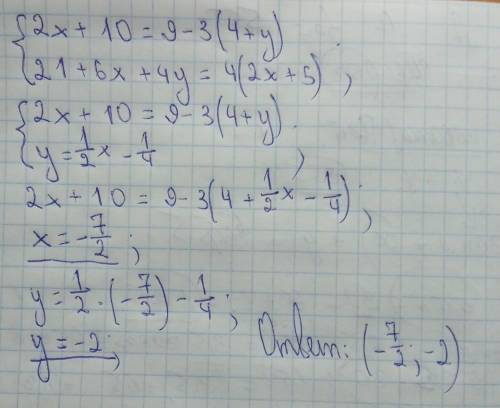 {2x + 10 = 9 - 3(4 + y)
{21 + 6x + 4y = 4(2x + 5) ;
{2x + 10 = 9 - 3(4 + y)
{y = 1/2 x - 1/4 ;
2x + 10 = 9 - 3(4 + 1/2 x - 1/4) ;
x = -7/2 ;
y = 1/2 · (-7/2) - 1/4 ;
y = -2 ;
Ответ: (-7/2 ; -2)